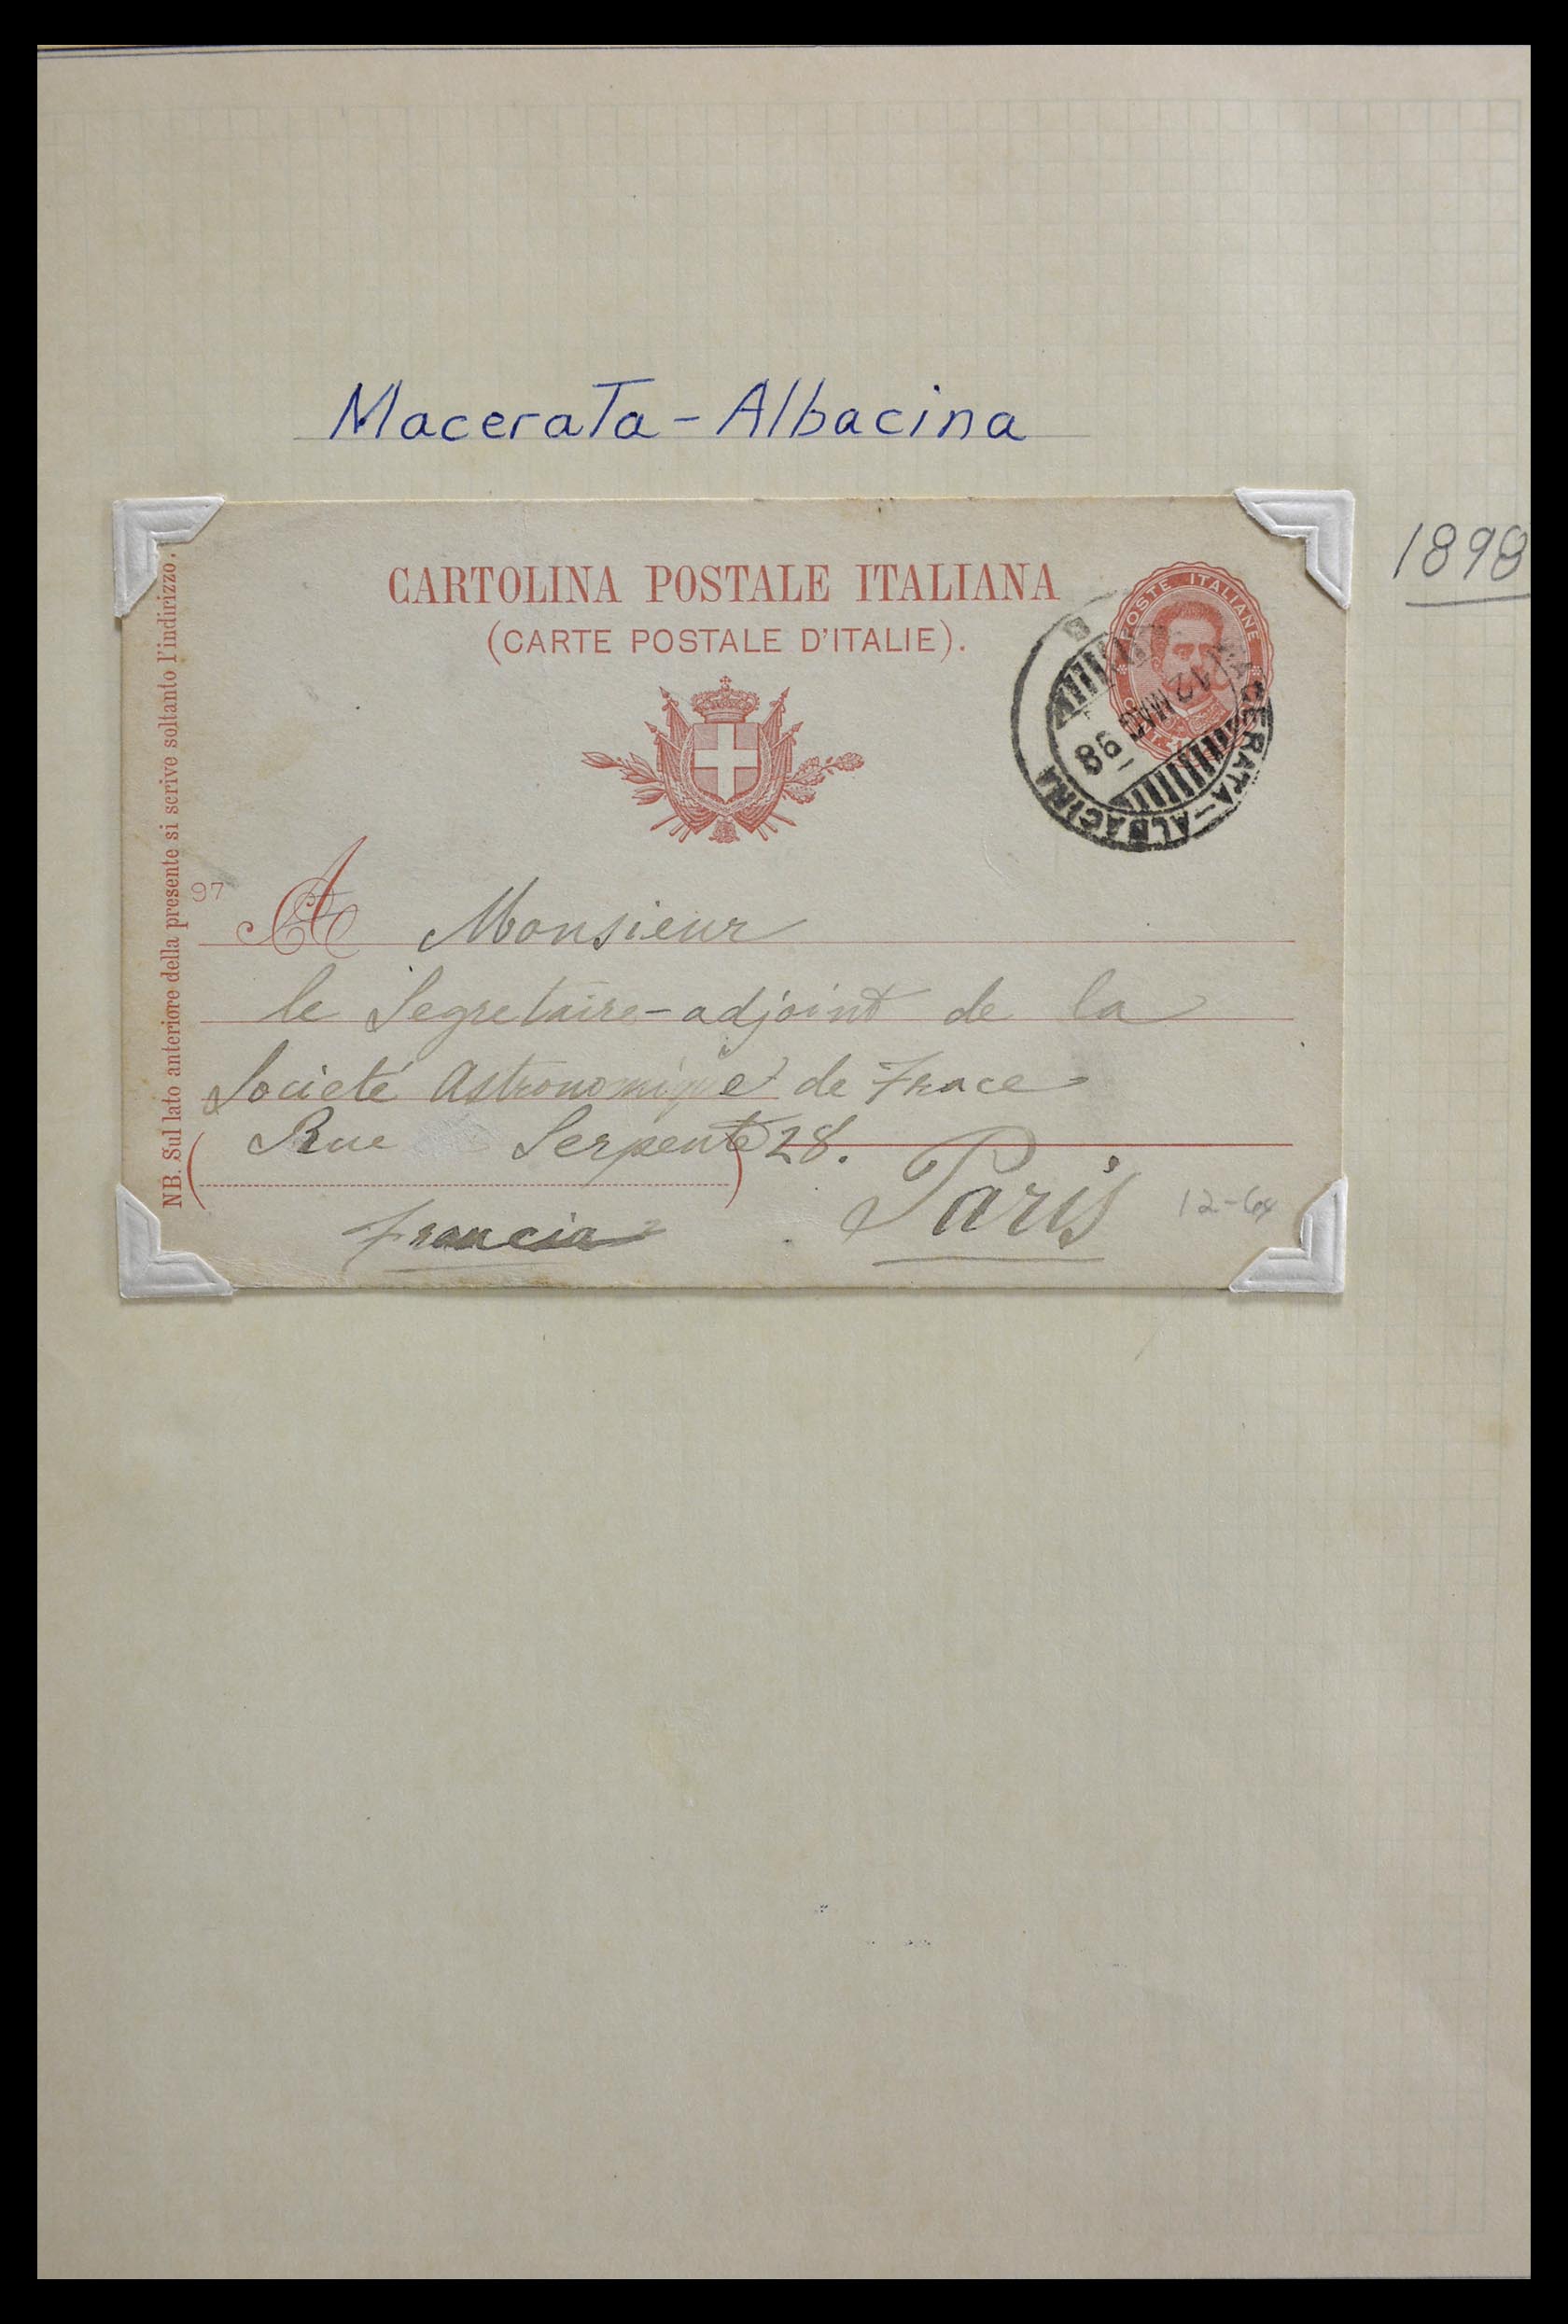 Macerata-Albacina
1898
CARTOLINA POSTALE ITALIANA
(CARTE POSTALE D'ITALIE).
POSTE ITALIANE
MACERATA-ALBACINA
12 MAG 98
NB. Sul lato anteriore della presente si scrive soltanto l'indirizzo.
97
A Monsieur
le Segretaire-adjoint de la
Societé Astronomique de Frace
Rue Serpente 28.
Paris
Francia